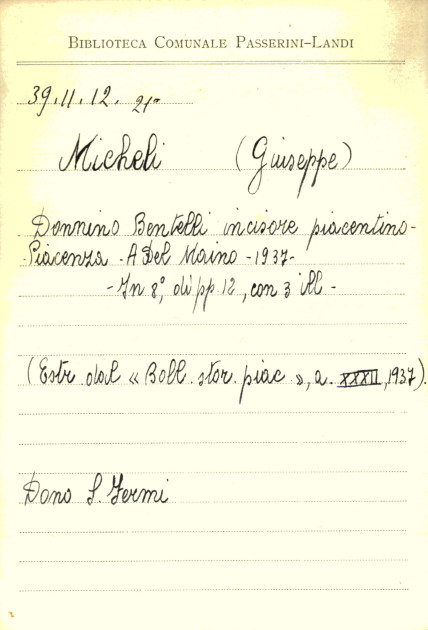 BIBLIOTECA COMUNALE PASSERINI-LANDI
39.II.12. 21º
Micheli (Giuseppe)
Donnino Bentelli incisore piacentino-
Piacenza - A Del Maino - 1937-
- In 8º, di pp 12, con 3 ill -
(Estr dal « Boll. stor. piac », a. XXXII, 1937).
Dono S. Fermi